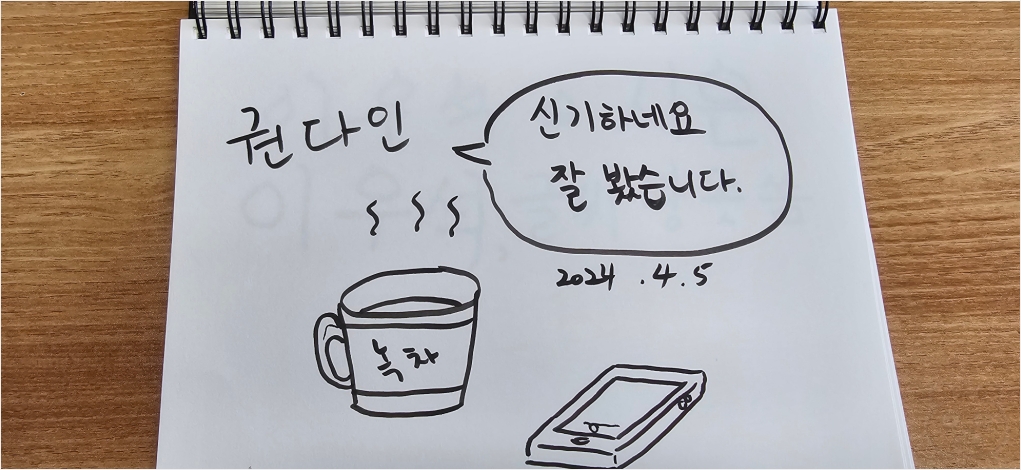 권다인
신기하네요
잘 봤습니다.
2024.4.5
녹차